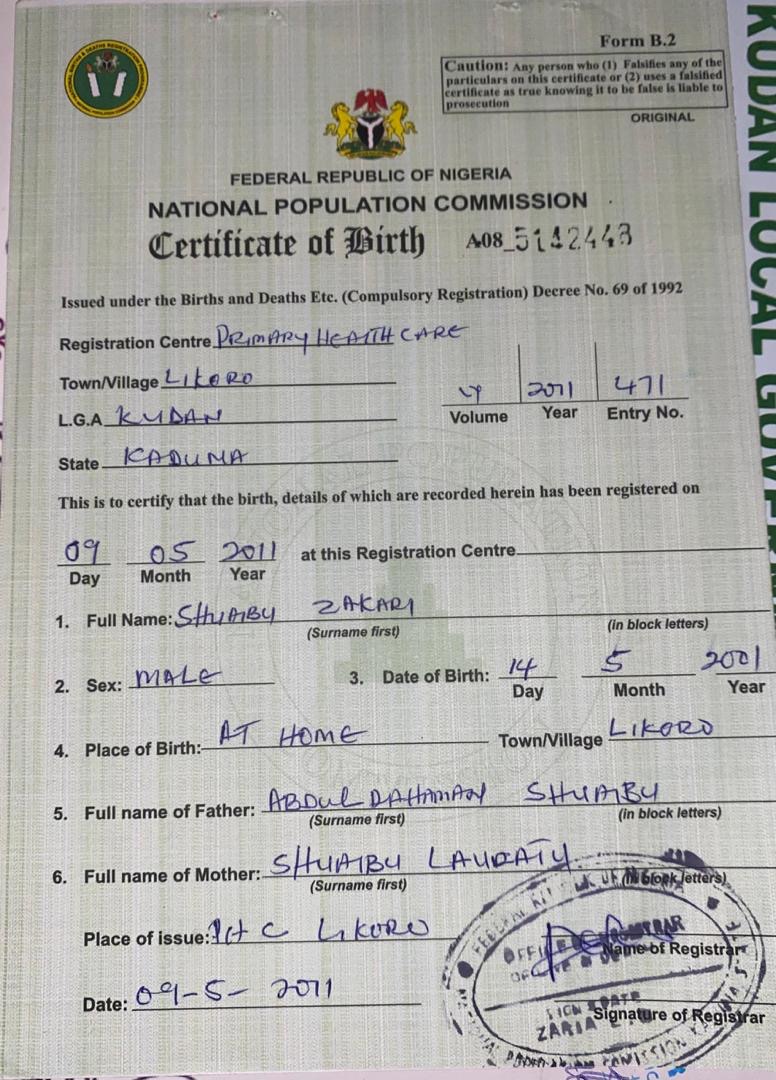 Form B.2
Caution: Any person who (1) Falsifies any of the
particulars on this certificate or (2) uses a falsified
certificate as true knowing it to be false is liable to
prosecution
ORIGINAL
FEDERAL REPUBLIC OF NIGERIA
NATIONAL POPULATION COMMISSION
Certificate of Birth A08_5142443
Issued under the Births and Deaths Etc. (Compulsory Registration) Decree No. 69 of 1992
Registration Centre PRIMARY HEALTH CARE
Town/Village LIKORO
2011 471
Volume Year Entry No.
L.G.A KUDAN
State KADUNA
This is to certify that the birth, details of which are recorded herein has been registered on
09 05 2011 at this Registration Centre
Day Month Year
1. Full Name: SHUAIBU ZAKARI
(Surname first) (in block letters)
2. Sex: MALE 3. Date of Birth: 14 5 2001
Day Month Year
4. Place of Birth: AT HOME Town/Village LIKORO
5. Full name of Father: ABDUL SHUAIBU
(Surname first) (in block letters)
6. Full name of Mother: SHUAIBU LAURATU
(Surname first) (in block letters)
Place of issue: PHC LIKORO
Name of Registrar
Date: 09-5-2011
Signature of Registrar
ZARIA
KUDAN LOCAL